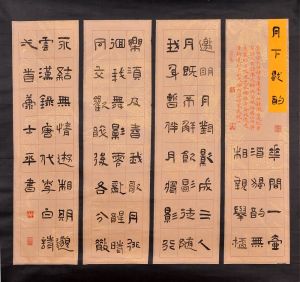 月下獨酌
華間一壺
酒獨酌無
相親舉杯
邀明月對影成三人
月既不解飲影徒隨
我身暫伴月將影行
樂須及春我歌月徘
徊我舞影零亂醒時
同交歡醉後各分散
永結無情遊相期邈
雲漢錄唐李白詩
首士平書